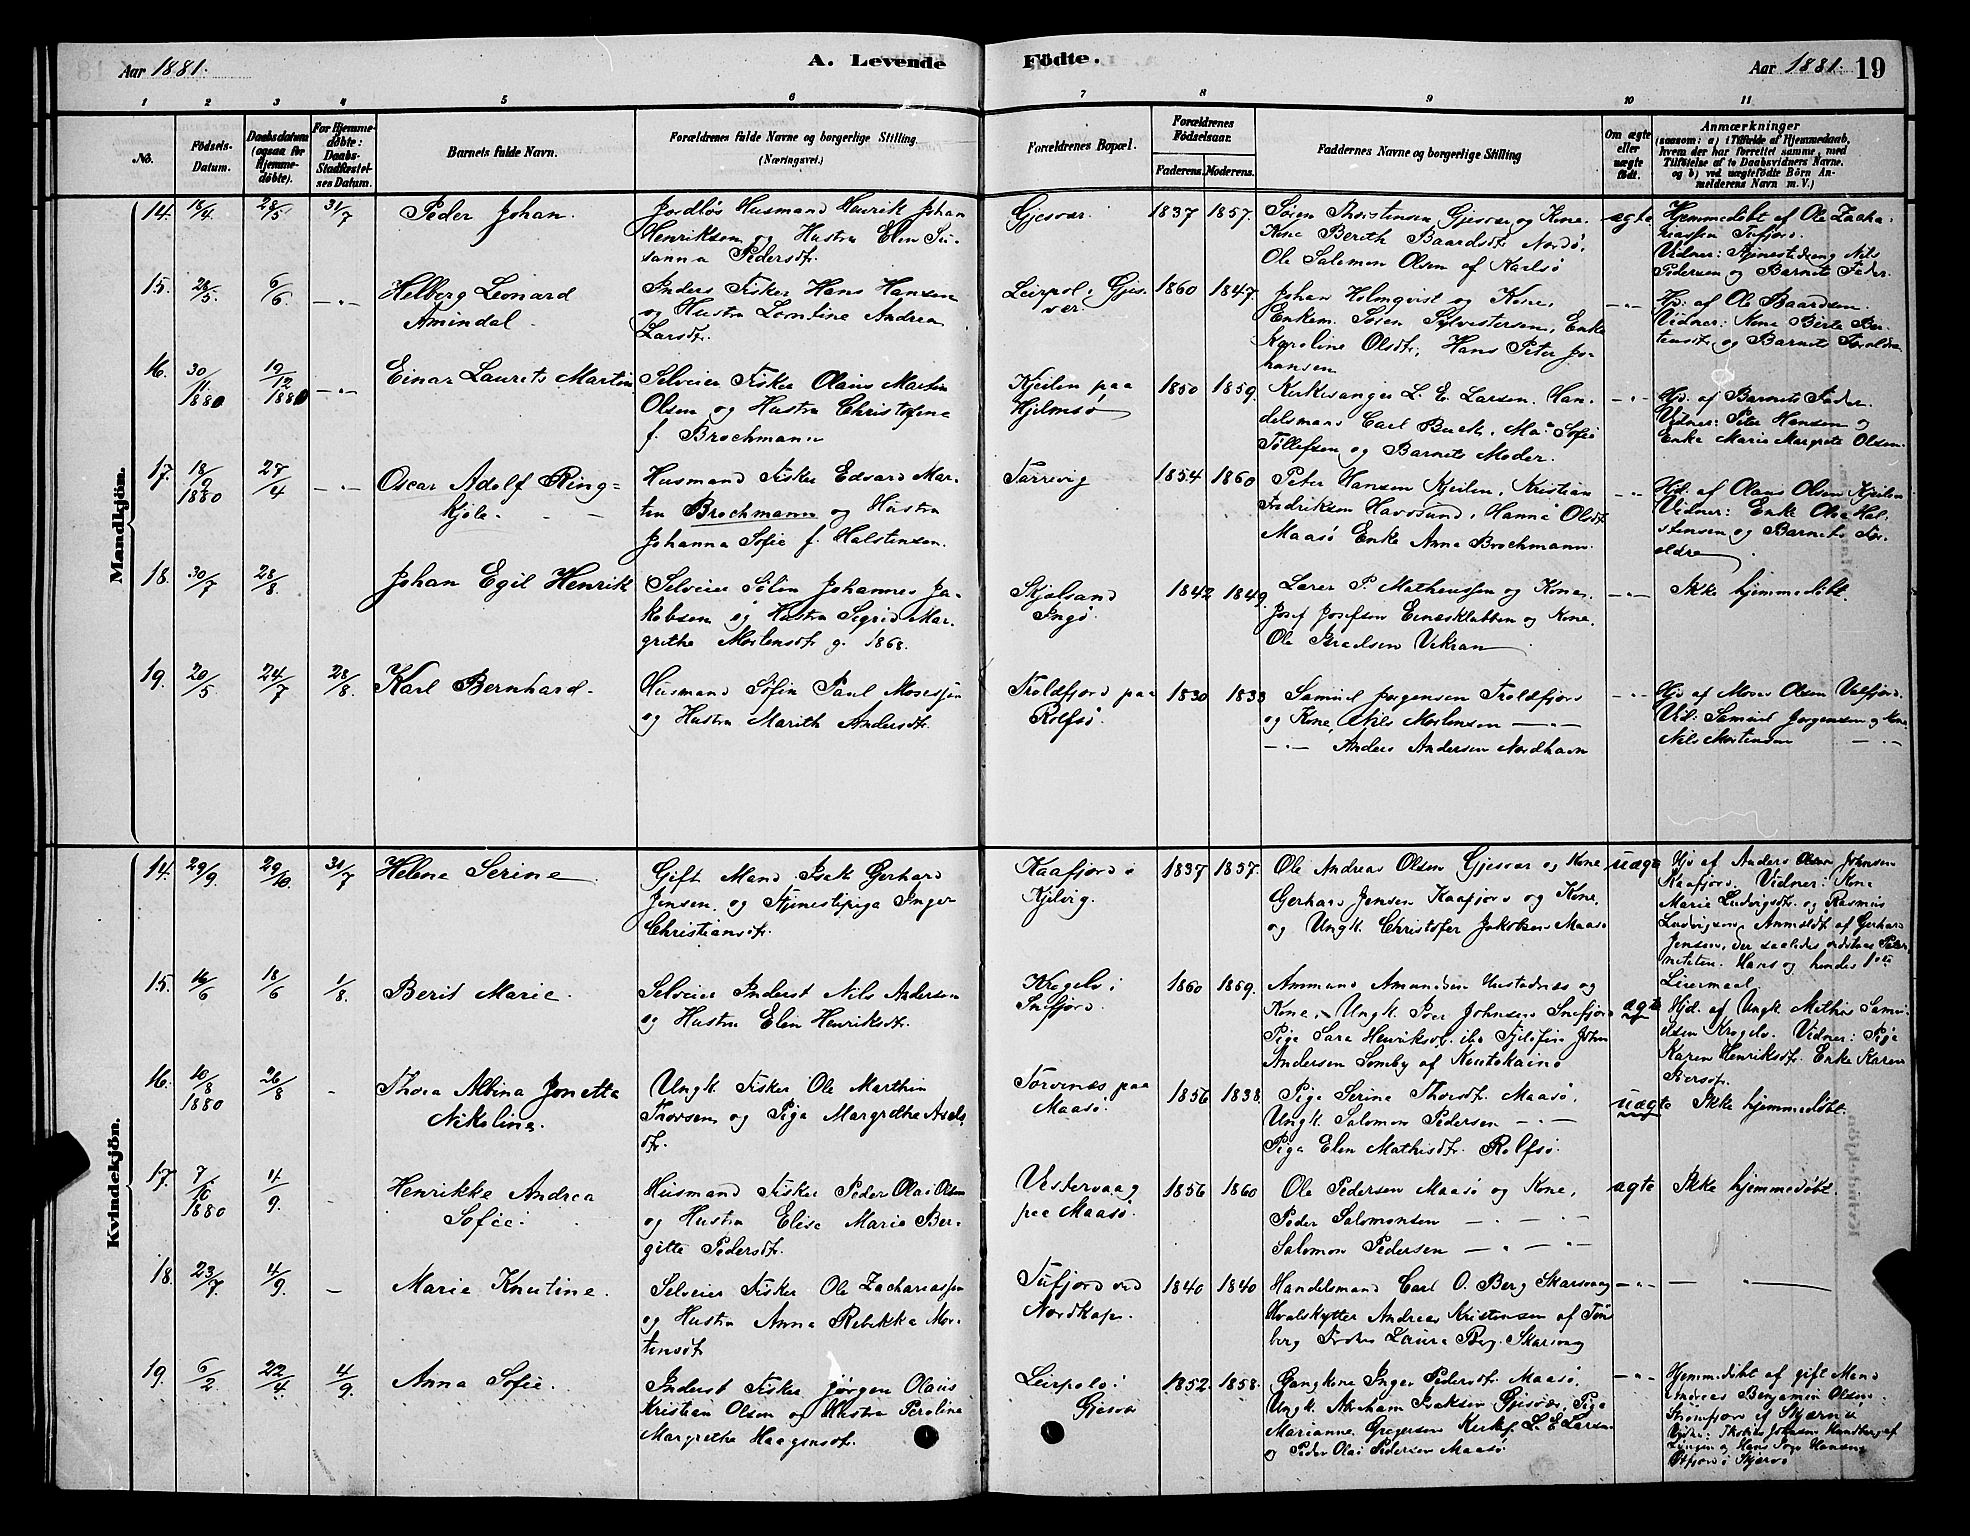 Aar 1881. A. Levende Födte. Aar 1881. 19
1 2 3 4 5 6 7 8 9 10 11
No. Födsels-Datum. Daabsdatum (ogsaa for Hjemme-döbte). For Hjemme-döbte: Daabs-Stadfæstel-ses Datum. Barnets fulde Navn. Forældrenes fulde Navne og borgerlige Stilling. (Næringsvei.) Forældrenes Bopæl. Forældrenes Födselsaar. Faderens. Moderens. Faddernes Navne og borgerlige Stilling Om ægte eller uægte födt. Anmærkninger
(saasom: a) i Tilfælde af Hjemmedaab,
hvem der har forrettet samme, med
Tilföielse af to Daabsvidners Navne,
og b) ved uægtefödte Börn An-
melderens Navn m. V.)
Mandkjön.
14. 18/4 28/5 31/7 Peder Johan.
Jordløs Husmand Henrik Johan
Henriksen og Hustru Elen Su-
sanna Pedersdtr.
Gjesvær. 1837 1857.
Søren Thorstensen Gjesvær og Kone.
Kone Berith Baardsdtr Nordø,
Ole Salomon Olsen af Karlsø
ægte
Hjemmedøbt af Ole Zacha-
riassen Tufjord.
Vidner: Tjenestedreng Nils
Pedersen og Barnets Fader.
15. 28/5. 6/6. -"- Helberg Leonard
Amindal.
Inders Fisker Hans Hansen
og Hustru Lorntine Andrea
Larsdtr.
Leirpol i Gjes-
vær. 1860 1847.
Johan Holmqvist og Kone,
Enkem. Søren Sylvestersen, Enke
Karoline Olsdtr, Hans Peter Jo-
hansen
-"-
Hjd. af Ole Baardsen.
Vidner: Kone Berte Ber-
tensdtr og Barnets Foreldre
16. 30/11 1880 19/12 1880 -"- Einar Laurits Martin
Selveier Fisker Olaus Martin
Olsen og Hustru Christofine
f. Brochmann
Kjeilen paa
Hjelmsø 1850 1859.
Kirkesanger L. E. Larsen. Han-
delsmand Carl Buck. Ma. Sofie
Tollefsen og Barnets Moder.
-"-
Hjd. af Barnets Fader.
Vidner: Peter Hansen og
Enke Marie Margrete Olsen.
17. 18/9 1880 27/4 -"- Oscar Adolf Ring-
kjøle.
Husmand Fisker Edvard Mar-
tin Brochmann og Hustru
Johanna Sofie f. Halstensen.
Tarrevig 1854 1860
Peter Hansen Kjeilen, Kristian
Fredriksen Havøsund, Hanna Olsdtr
Maasø Enke Anna Brochmann.
-"-
Hjd. af Olaus Olsen Kjeilen
Vidner: Enke Olva Hal-
stensen og Barnets For-
ældre
18. 30/7 28/8 Johan Egil Henrik
Selveier Søfin Johannes Ja-
kobsen og Hustru Sigrid Mar-
grethe Mortensdtr g. 1868.
Skjølsand
Ingø. 1842 1849.
Lærer P. Matheussen og Kone,
Josef Josefsen Eineskløbben og Kone.
Ole Bredsen Vikran
-"-
Ikke hjemmedøbt.
19. 20/5 24/7 28/8. Karl Bernhard.
Husmand Søfin Paul Mosessen
og Hustru Marith Andersdtr.
Troldfjord paa
Rolfsø. 1830 1833
Samuel Jørgensen Troldfjord
og Kone, Nils Mortensen -"-
-"- Anders Andersen Nordhavn
-"-
Hjd af Moses Olsen Valfjord
Vid: Samuel Jørgensen og Kone
Nils Mortensen -"-
Kvindekjön.
14. 29/9. 29/10. 31/7 Helene Serine
Gift Mand Isak Gerhard
Jensen og Tjenestepige Inger
Christiansdtr.
Kaafjord i
Kjelvig. 1837 1857.
Ole Andreas Olsen Gjesvær og Kone
Gerhard Jensen Kaafjord og Kone,
og Ungk. Christofer Jakobsen Maasø
uægte
Hjd af Anders Olsen Johnsen
Kaafjord. Vidner: Kone
Marie Ludvigsdtr. og Rasmus
Ludvigsen. Anmeldt af Gerhard
Jensen, der saaledes
Hans og hendes 1ste
Leiermaal.
15. 16/6 18/6 1/8. Berit Marie.
Selveier Inderst Nils Andersen
og Hustru Elen Henriksdtr.
Krogelv i
Snefjord. 1860 1859.
Ammund Amundsen Hustadnæs og
Kone, Ungk. Peer Johnsen Snefjord
Pige Sara Henriksdtr. Fjeldfin John
Andersen Somby af Koutokeino
ægte
Hjd. af Ungk Mathis Samu-
elsen Krogelv. Vidner: Pige
Karen Henriksdtr. Enke Karen
Persdtr.
16. 10/8 1880 26/8 - Thora Albina Jonetta
Nikoline.
Ungk Fisker Ole Marthin
Thorsen og Pige Margrethe Axels-
dtr.
Torvenæs paa
Maasø. 1856 1838.
Pige Serine Thorsdtr. Maasø,
Ungk. Salomon Pedersen -"-
Pige Elen Mathisdtr. Rolfsø.
uægte
Ikke hjemmedøbt.
17. 7/10 1880 4/9. - Henrikke Andrea
Sofie.
Husmand Fisker Peder Olai Olsen
og Hustru Elise Marie Ber-
gitte Pedersdtr.
Vestervaag
paa Maasø. 1856 1860
Ole Pedersen Maasø og Kone,
Peder Salomonsen -"-
Salomon Pedersen -"-
ægte
Ikke hjemmedøbt.
18. 23/7 4/9. - Marie Knutine.
Selveier Fisker Ole Zachariassen
og Hustru Anna Rebikka Mor-
tensdtr
Tufjord ved
Nordkap. 1840 1840
Handelsmand Carl O. Berg Skarsvaag
Hvalskytter Andreas Kristensen af Tøns-
berg Frøken Laura Berg Skarsvaag
-"-
-"-
19. 6/2 22/4. 4/9. Anna Sofie.
Inderst Fisker Jørgen Olaus
Kristian Olsen og Hustru Peroline
Margrethe Haagensdtr.
Leirpol i
Gjesvær 1852. 1858.
Gangkone Inger Pedersdtr. Maasø,
Ungk. Abraham Isaksen Gjesvær, Pige
Marianne Gregersen Kirkes. L. E. Larsen
og Peder Olai Pedersen Maasø
-"-
Hjemmedøbt af gift Mand
Andreas Benjamin Olsen
Strømfjord i Skjervø